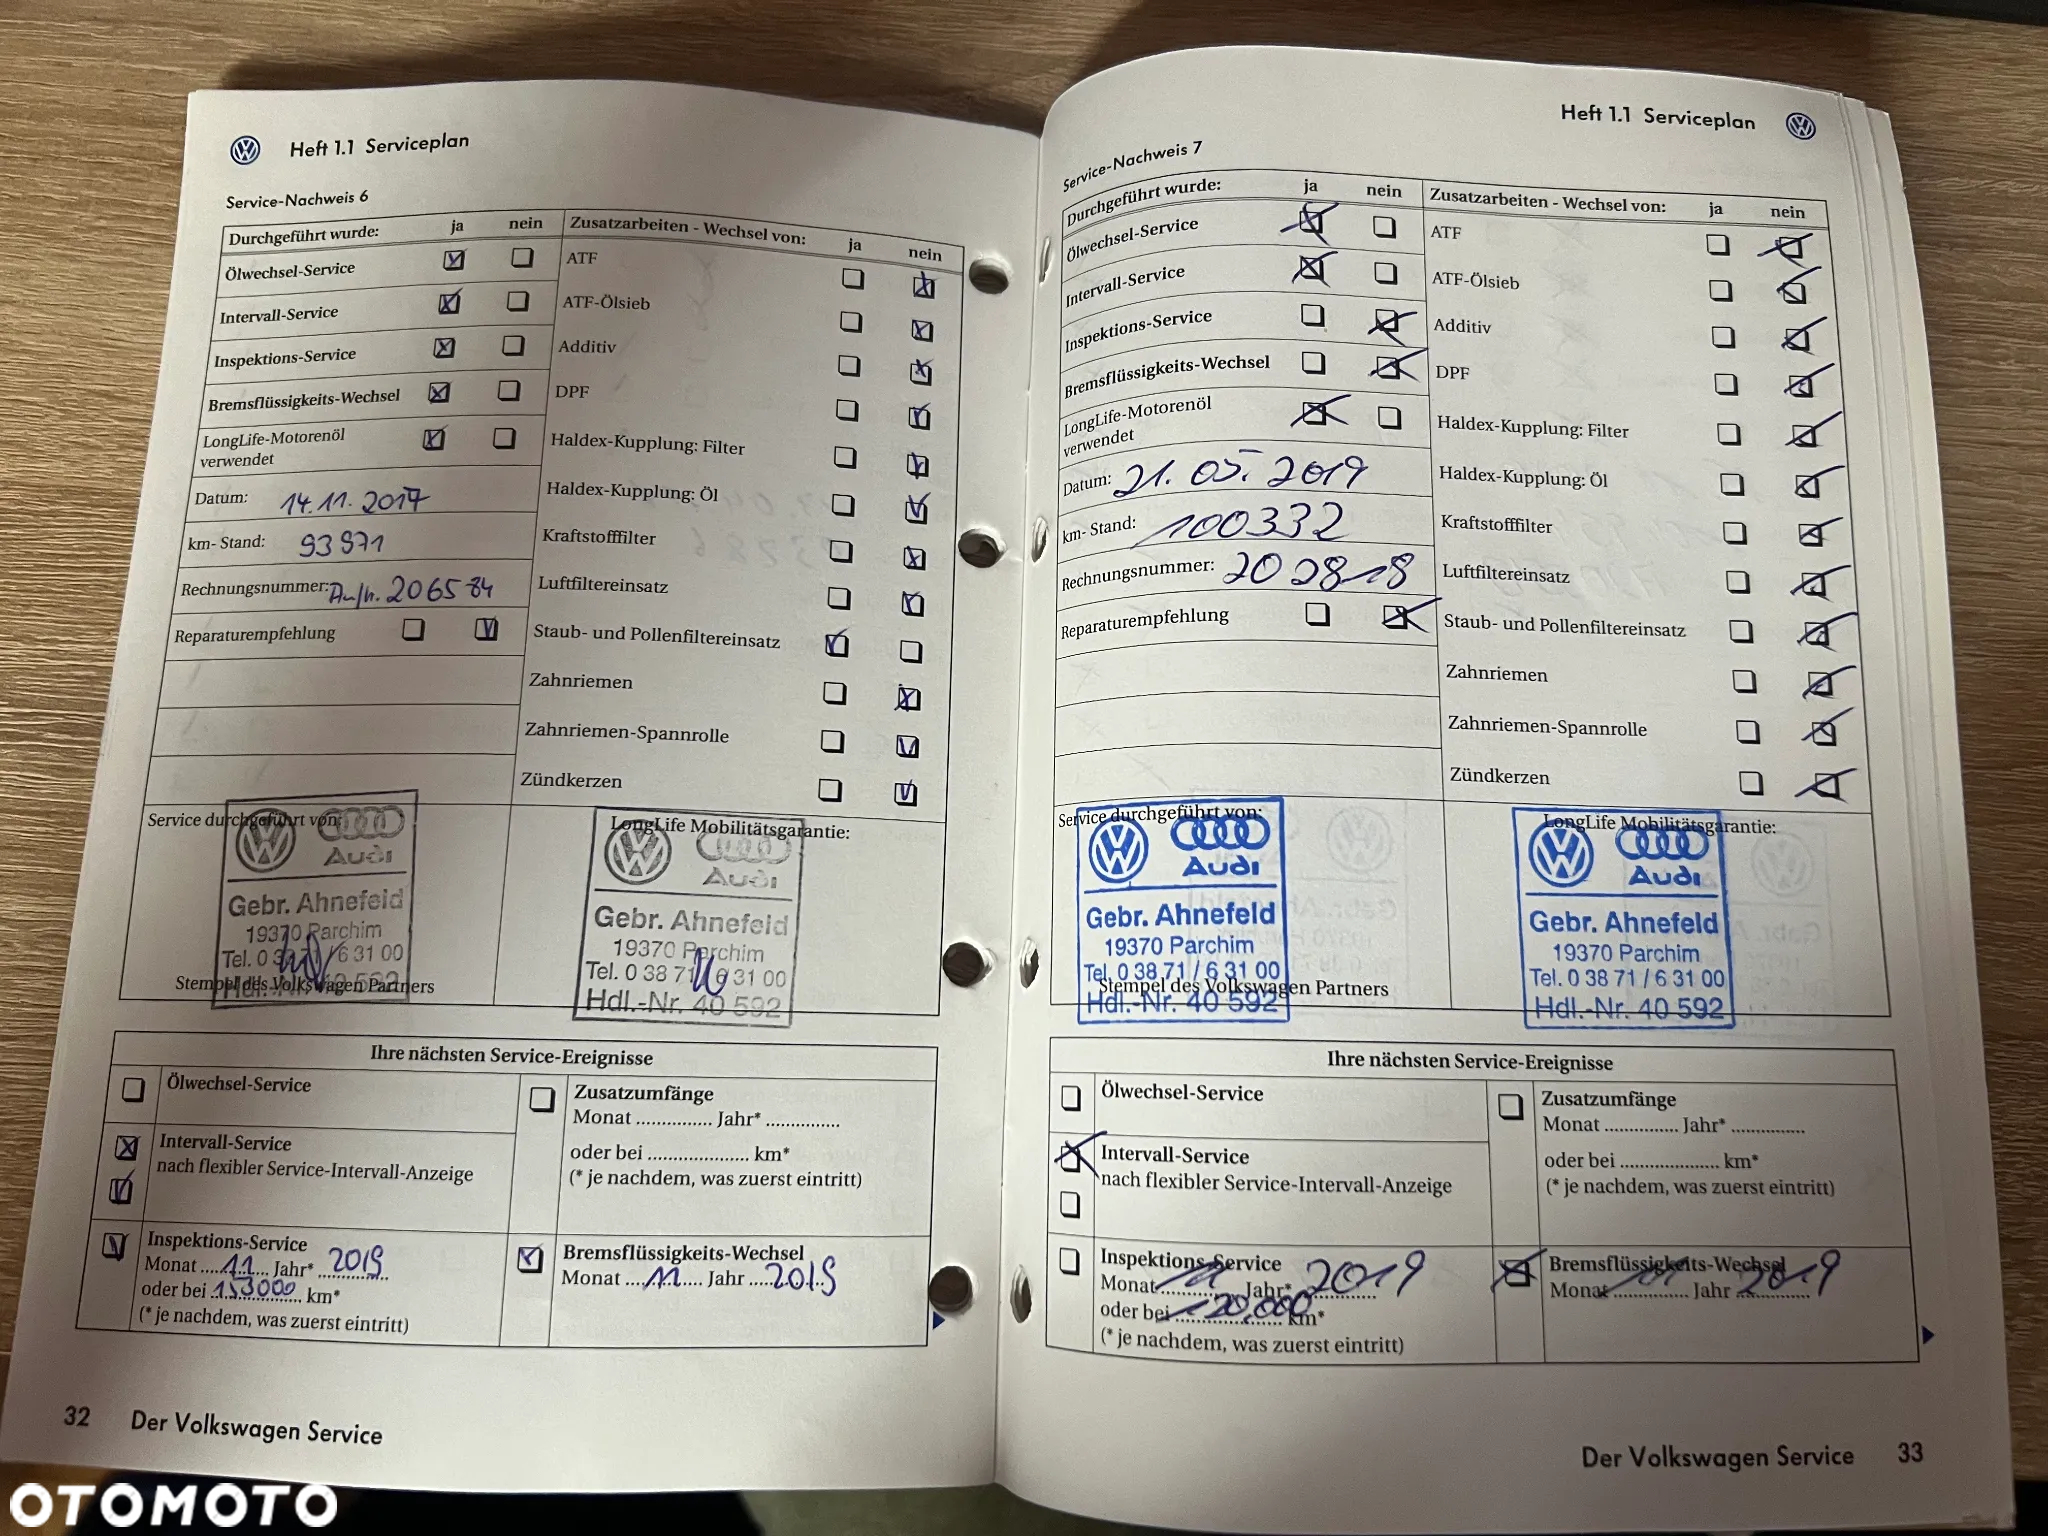 Heft 1.1 Serviceplan
Service-Nachweis 6
Durchgeführt wurde: ja nein
Ölwechsel-Service
Intervall-Service
Inspektions-Service
Bremsflüssigkeits-Wechsel
LongLife-Motorenöl
verwendet
Datum: 14.11.2017
km- Stand: 93971
Rechnungsnummer: 2065
Reparaturempfehlung
Zusatzarbeiten - Wechsel von: ja nein
ATF
ATF-Ölsieb
Additiv
DPF
Haldex-Kupplung: Filter
Haldex-Kupplung: Öl
Kraftstofffilter
Luftfiltereinsatz
Staub- und Pollenfiltereinsatz
Zahnriemen
Zahnriemen-Spannrolle
Zündkerzen
Service durchgeführt von:
Audi
Gebr. Ahnefeld
19370 Parchim
Tel. 0 38 71 / 6 31 00
Hdl.-Nr. 40 592
Stempel des Volkswagen Partners
LongLife Mobilitätsgarantie:
Audi
Gebr. Ahnefeld
19370 Parchim
Tel. 0 38 71 / 6 31 00
Hdl.-Nr. 40 592
Ihre nächsten Service-Ereignisse
Ölwechsel-Service
Intervall-Service
nach flexibler Service-Intervall-Anzeige
Inspektions-Service
Monat 11 Jahr* 2019
oder bei 153000 km*
(* je nachdem, was zuerst eintritt)
Zusatzumfänge
Monat ............... Jahr* ...............
oder bei .................... km*
(* je nachdem, was zuerst eintritt)
Bremsflüssigkeits-Wechsel
Monat 11 Jahr 2019
32 Der Volkswagen Service
Heft 1.1 Serviceplan
Service-Nachweis 7
Durchgeführt wurde: ja nein
Ölwechsel-Service
Intervall-Service
Inspektions-Service
Bremsflüssigkeits-Wechsel
LongLife-Motorenöl
verwendet
Datum: 21.05.2019
km- Stand: 100332
Rechnungsnummer: 202818
Reparaturempfehlung
Zusatzarbeiten - Wechsel von: ja nein
ATF
ATF-Ölsieb
Additiv
DPF
Haldex-Kupplung: Filter
Haldex-Kupplung: Öl
Kraftstofffilter
Luftfiltereinsatz
Staub- und Pollenfiltereinsatz
Zahnriemen
Zahnriemen-Spannrolle
Zündkerzen
Service durchgeführt von:
Audi
Gebr. Ahnefeld
19370 Parchim
Tel. 0 38 71 / 6 31 00
Stempel des Volkswagen Partners
Hdl.-Nr. 40 592
LongLife Mobilitätsgarantie:
Audi
Gebr. Ahnefeld
19370 Parchim
Tel. 0 38 71 / 6 31 00
Hdl.-Nr. 40 592
Ihre nächsten Service-Ereignisse
Ölwechsel-Service
Intervall-Service
nach flexibler Service-Intervall-Anzeige
Inspektions-Service
Monat 11 Jahr* 2019
oder bei 120,000 km*
(* je nachdem, was zuerst eintritt)
Zusatzumfänge
Monat ............... Jahr* ...............
oder bei .................... km*
(* je nachdem, was zuerst eintritt)
Bremsflüssigkeits-Wechsel
Monat 11 Jahr 2019
Der Volkswagen Service 33
OTOMOTO